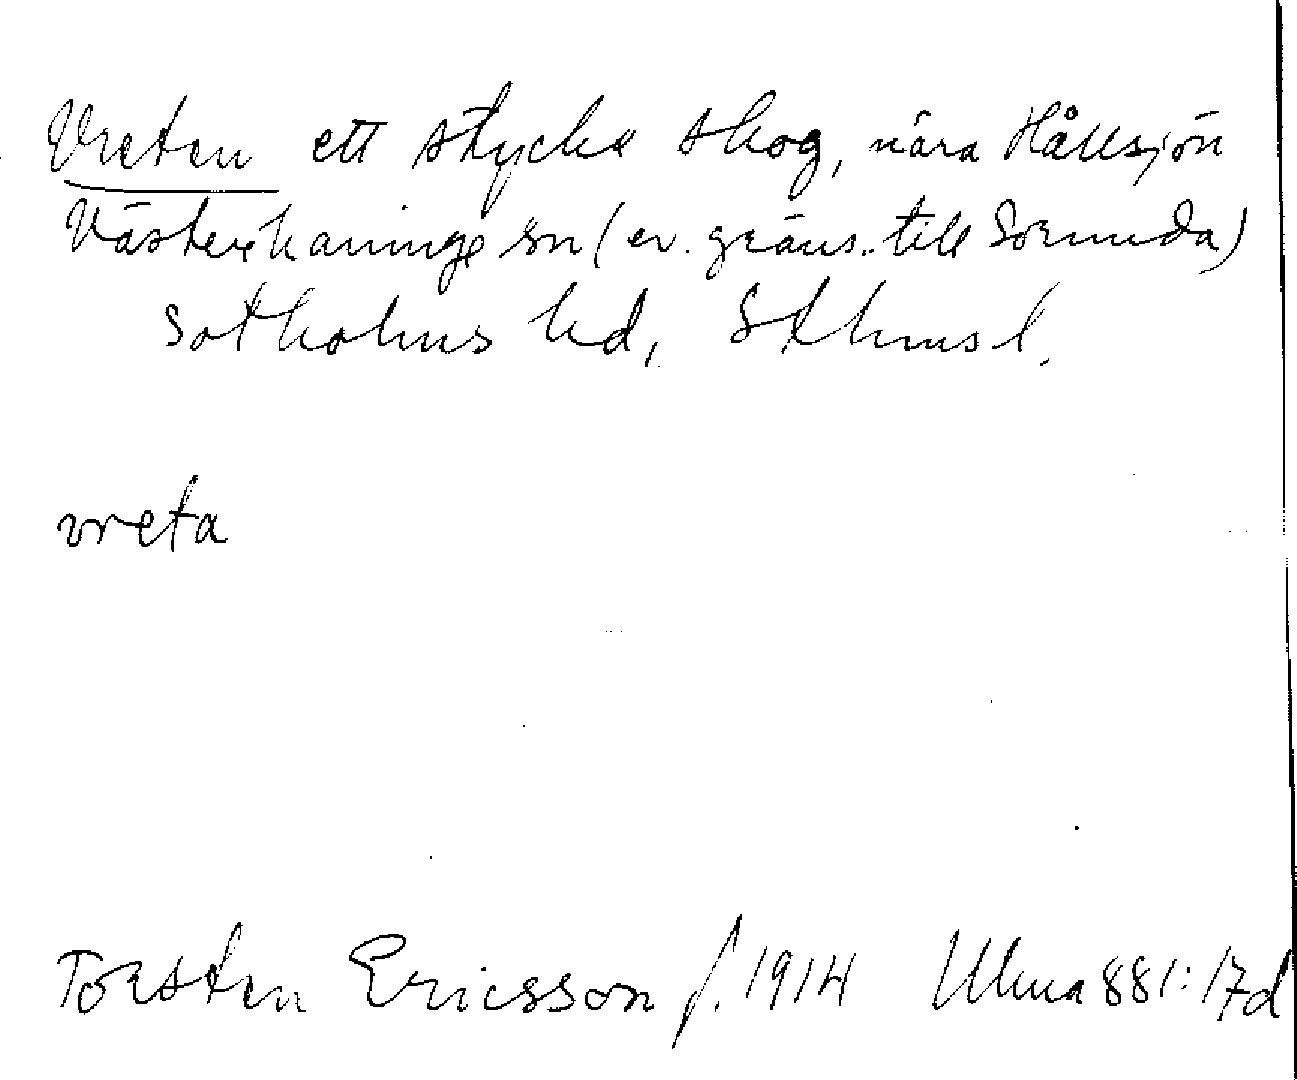 Vreten ett stycke skog, nära Hållsjön
Västerhaninge sn (ev. gräns. till Sorunda)
Sotholms hd, Sthms l.
vreta
Torsten Ericsson f. 1914 Ulma 881:17d